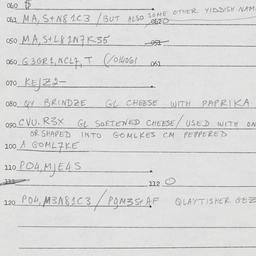 060 $
061 MA, S+N81C3 / BUT ALSO SOME OTHER YIDDISH NAM
0620
050 MA, S+L81N7K35 051
060 G3GR1, NCL7, T (/01606) 061
070 KEJZ2-
080 QY BRINDZE GL CHEESE WITH PAPRIKA
090 CVU. R3X GL SOFTENED CHEESE/ USED WITH ON
OR SHAPED INTO GOMLKES CM PEPPERED
100 A GOML7KE
110 PO4, MJE4S
111 112 O
120 PO4, M3N81C3 / PQM35+AF QLAYTISHER GEZ